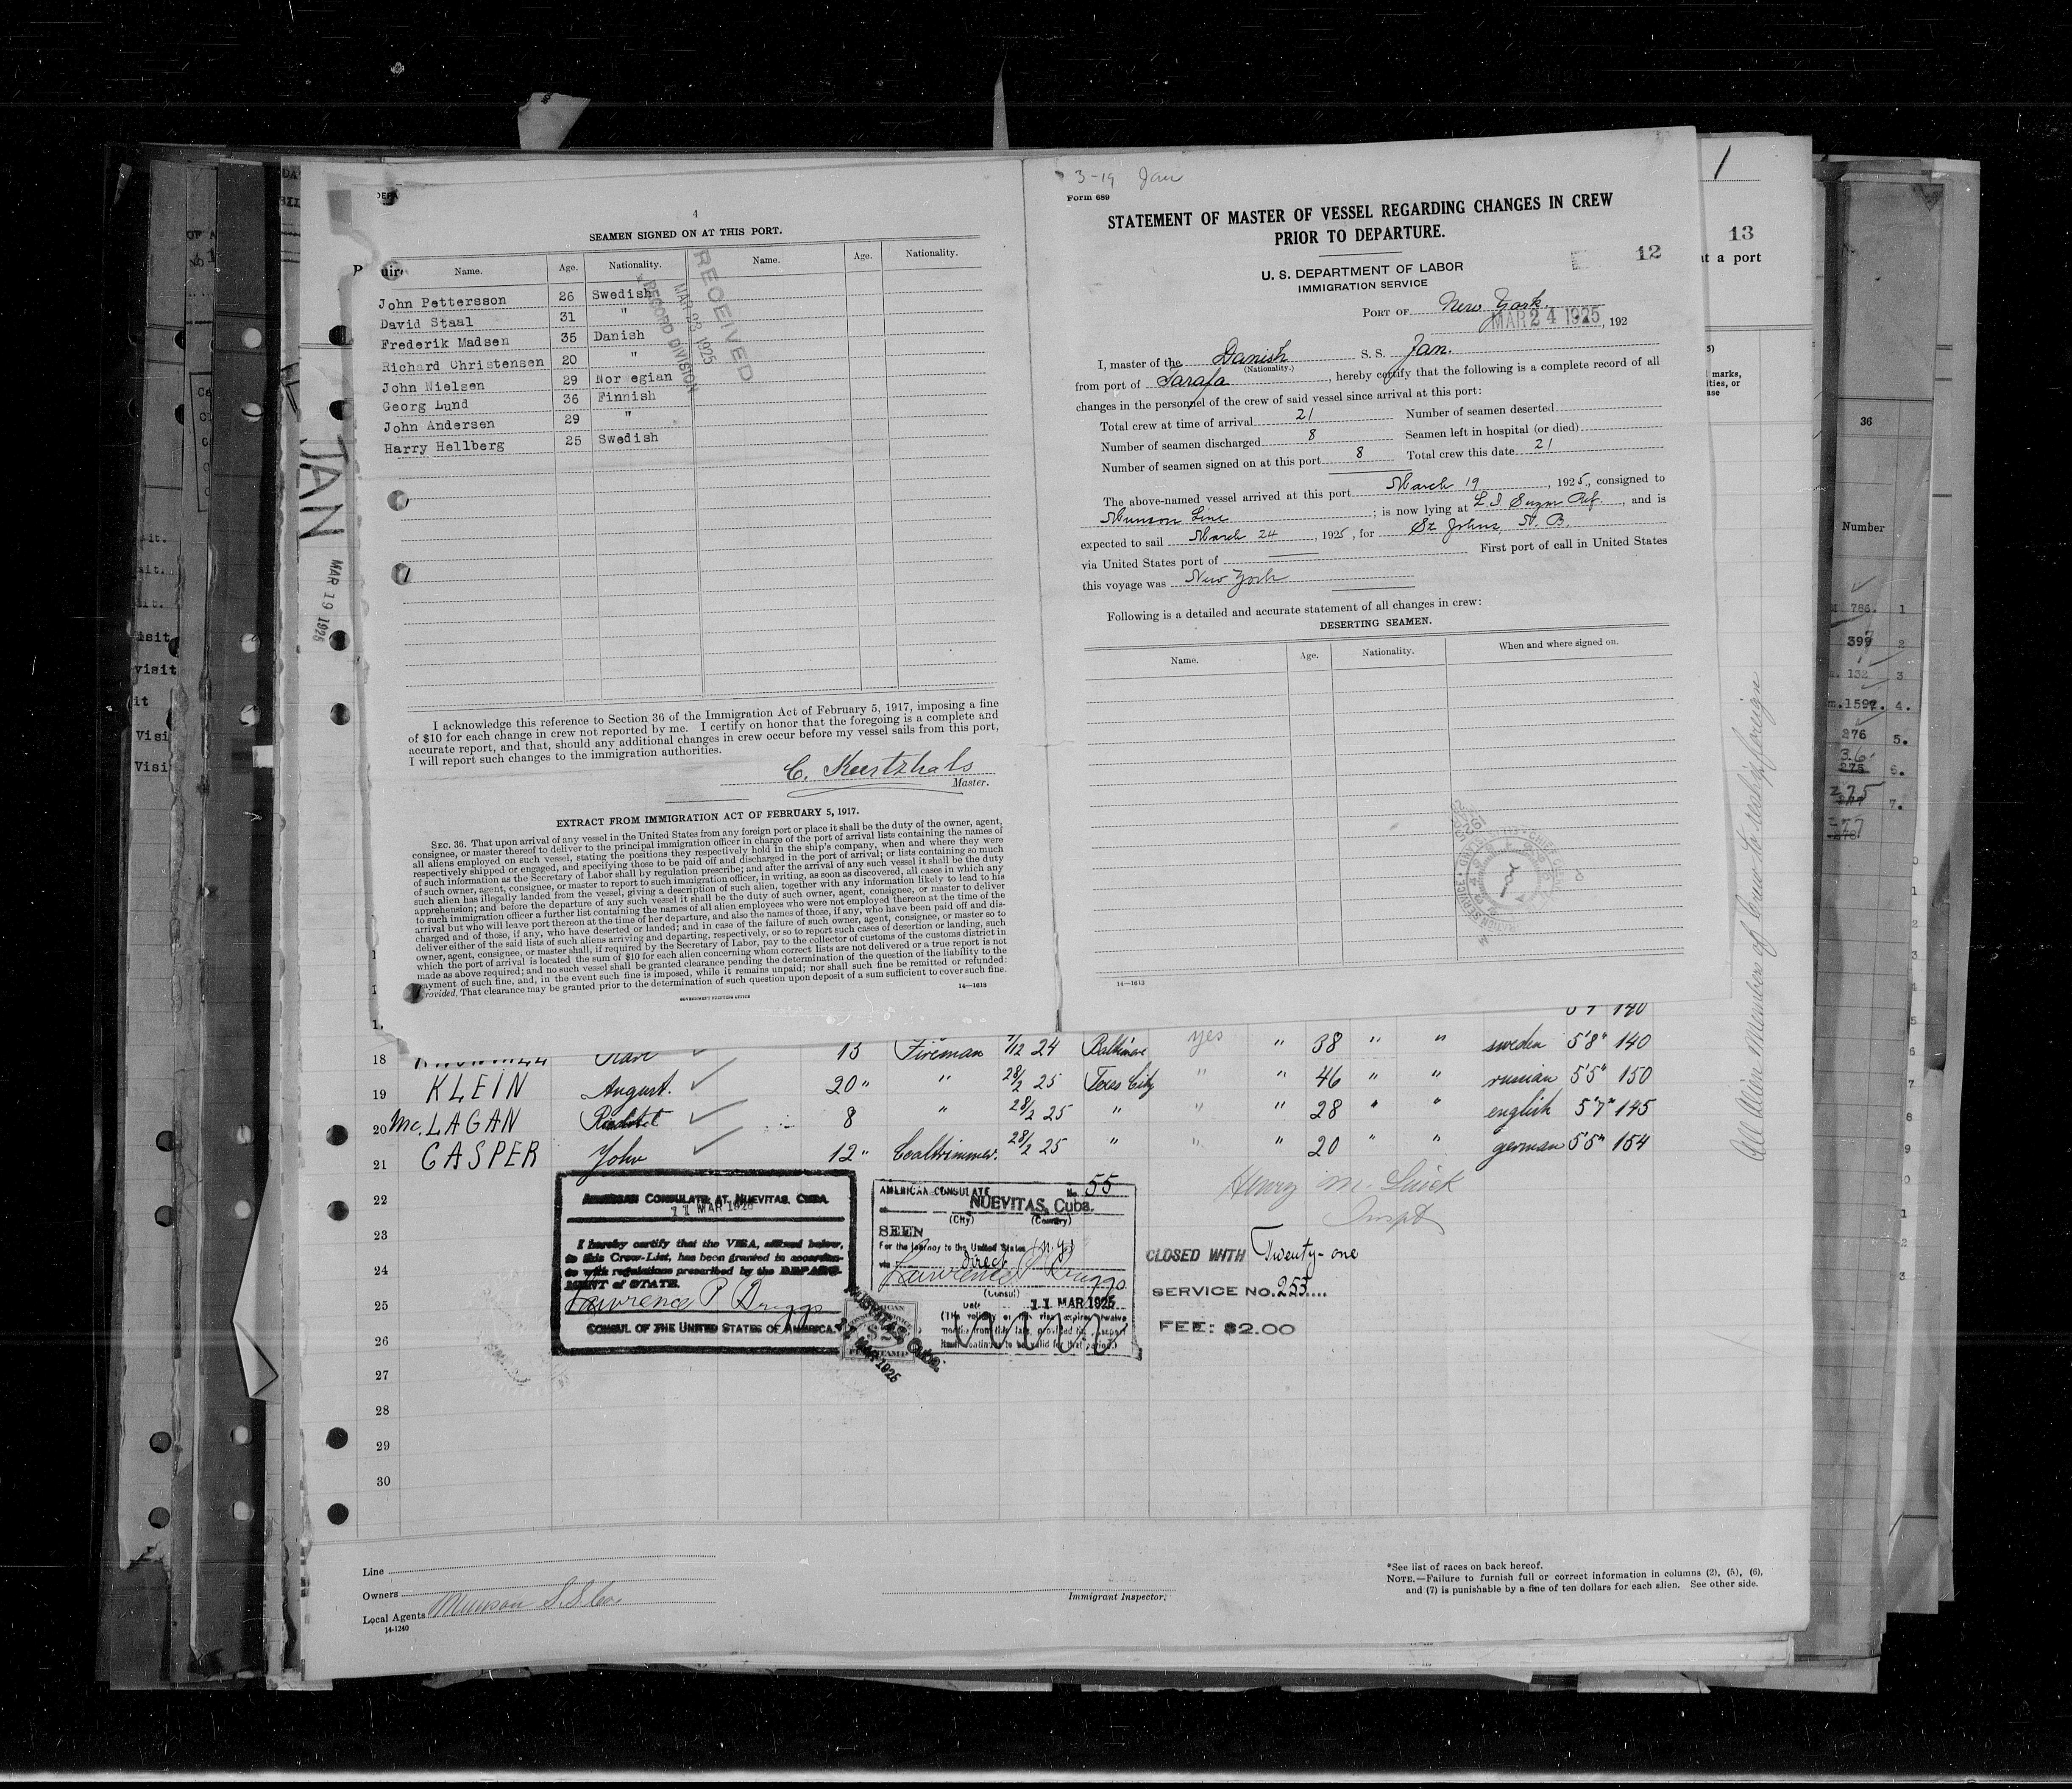 4
SEAMEN SIGNED ON AT THIS PORT.
Name. Age. Nationality. Name. Age. Nationality.
John Pettersson 26 Swedish
David Staal 31 "
Frederik Madsen 35 Danish
Richard Christensen 20 "
John Nielsen 29 Norwegian
Georg Lund 36 Finnish
John Andersen 29 "
Harry Hellberg 25 Swedish
RECEIVED
MAR 28 1925
RECORD DIVISION
I acknowledge this reference to Section 36 of the Immigration Act of February 5, 1917, imposing a fine
of $10 for each change in crew not reported by me. I certify on honor that the foregoing is a complete and
accurate report, and that, should any additional changes in crew occur before my vessel sails from this port,
I will report such changes to the immigration authorities.
C. Kurtzhals
Master.
EXTRACT FROM IMMIGRATION ACT OF FEBRUARY 5, 1917.
SEC. 36. That upon arrival of any vessel in the United States from any foreign port or place it shall be the duty of the owner, agent,
consignee, or master thereof to deliver to the principal immigration officer in charge of the port of arrival lists containing the names of
all aliens employed on such vessel, stating the positions they respectively hold in the ship's company, when and where they were
respectively shipped or engaged, and specifying those to be paid off and discharged in the port of arrival; or lists containing so much
of such information as the Secretary of Labor shall by regulation prescribe; and after the arrival of any such vessel it shall be the duty
of such owner, agent, consignee, or master to report to such immigration officer, in writing, as soon as discovered, all cases in which any
such alien has illegally landed from the vessel, giving a description of such alien, together with any information likely to lead to his
apprehension; and before the departure of any such vessel it shall be the duty of such owner, agent, consignee, or master to deliver
to such immigration officer a further list containing the names of all alien employees who were not employed thereon at the time of the
arrival but who will leave port thereon at the time of her departure, and also the names of those, if any, who have been paid off and dis-
charged and of those, if any, who have deserted or landed; and in case of the failure of such owner, agent, consignee, or master so to
deliver either of the said lists of such aliens arriving and departing, respectively, or so to report such cases of desertion or landing, such
owner, agent, consignee, or master shall, if required by the Secretary of Labor, pay to the collector of customs of the customs district in
which the port of arrival is located the sum of $10 for each alien concerning whom correct lists are not delivered or a true report is not
made as above required; and no such vessel shall be granted clearance pending the determination of the question of the liability to the
payment of such fine, and, in the event such fine is imposed, while it remains unpaid; nor shall such fine be remitted or refunded:
Provided, That clearance may be granted prior to the determination of such question upon deposit of a sum sufficient to cover such fine.
GOVERNMENT PRINTING OFFICE
14—1613
3-19 Jan
Form 689
STATEMENT OF MASTER OF VESSEL REGARDING CHANGES IN CREW
PRIOR TO DEPARTURE.
12
U. S. DEPARTMENT OF LABOR
IMMIGRATION SERVICE
PORT OF New York
MAR 24 1925, 192
I, master of the Danish S. S. Jan.
(Nationality.)
from port of Tarafa, hereby certify that the following is a complete record of all
changes in the personnel of the crew of said vessel since arrival at this port:
Total crew at time of arrival 21 Number of seamen deserted
Number of seamen discharged 8 Seamen left in hospital (or died)
Number of seamen signed on at this port 8 Total crew this date 21
The above-named vessel arrived at this port March 19, 1925, consigned to
Munson Line; is now lying at L. I Sugar Ref., and is
expected to sail March 24, 1925, for St Johns, N. B.
via United States port of First port of call in United States
this voyage was New York
Following is a detailed and accurate statement of all changes in crew:
DESERTING SEAMEN.
Name. Age. Nationality. When and where signed on.
14—1613
1
13
at a port
marks,
ities, or
ase
36
Number
786. 1
399 2
132 3
1597. 4.
276 5.
36
275 6.
275 7.
277
JAN
MAR 19 1925
All Alien Members of Crew to reship foreign
5'7 140
18 Karl 13 Fireman 9/12 24 Baltimore yes " 38 " " sweden 5'8" 140
19 KLEIN August. 20 " " 28/2 25 Texas City " " 46 " " russian 5'5" 150
20 Mc. LAGAN 8 " 28/2 25 " " " 28 " " english 5'7" 145
21 CASPER John 12 " Coaltrimmer. 28/2 25 " " " 20 " " german 5'5" 154
22
23
24
25
26
27
28
29
30
AMERICAN CONSULATE AT NUEVITAS, CUBA.
11 MAR 1925
I hereby certify that the VISA, affixed below,
to this Crew-List, has been granted in accordan-
ce with regulations prescribed by the DEPART-
MENT of STATE.
Lawrence P Briggs
CONSUL OF THE UNITED STATES OF AMERICA.
AMERICAN CONSULATE No. 55
NUEVITAS, Cuba.
(City) (Country)
SEEN
For the journey to the United States
via direct
Lawrence P Briggs
(Consul)
Date 11 MAR 1925
NUEVITAS, Cuba.
11 MAR 1925
Henry M. Quick
Inspt
CLOSED WITH Twenty-one
SERVICE NO. 255
FEE: $2.00
Line
Owners
Local Agents Munson S. S Co.
14-1240
Immigrant Inspector.
*See list of races on back hereof.
NOTE.—Failure to furnish full or correct information in columns (2), (5), (6),
and (7) is punishable by a fine of ten dollars for each alien. See other side.